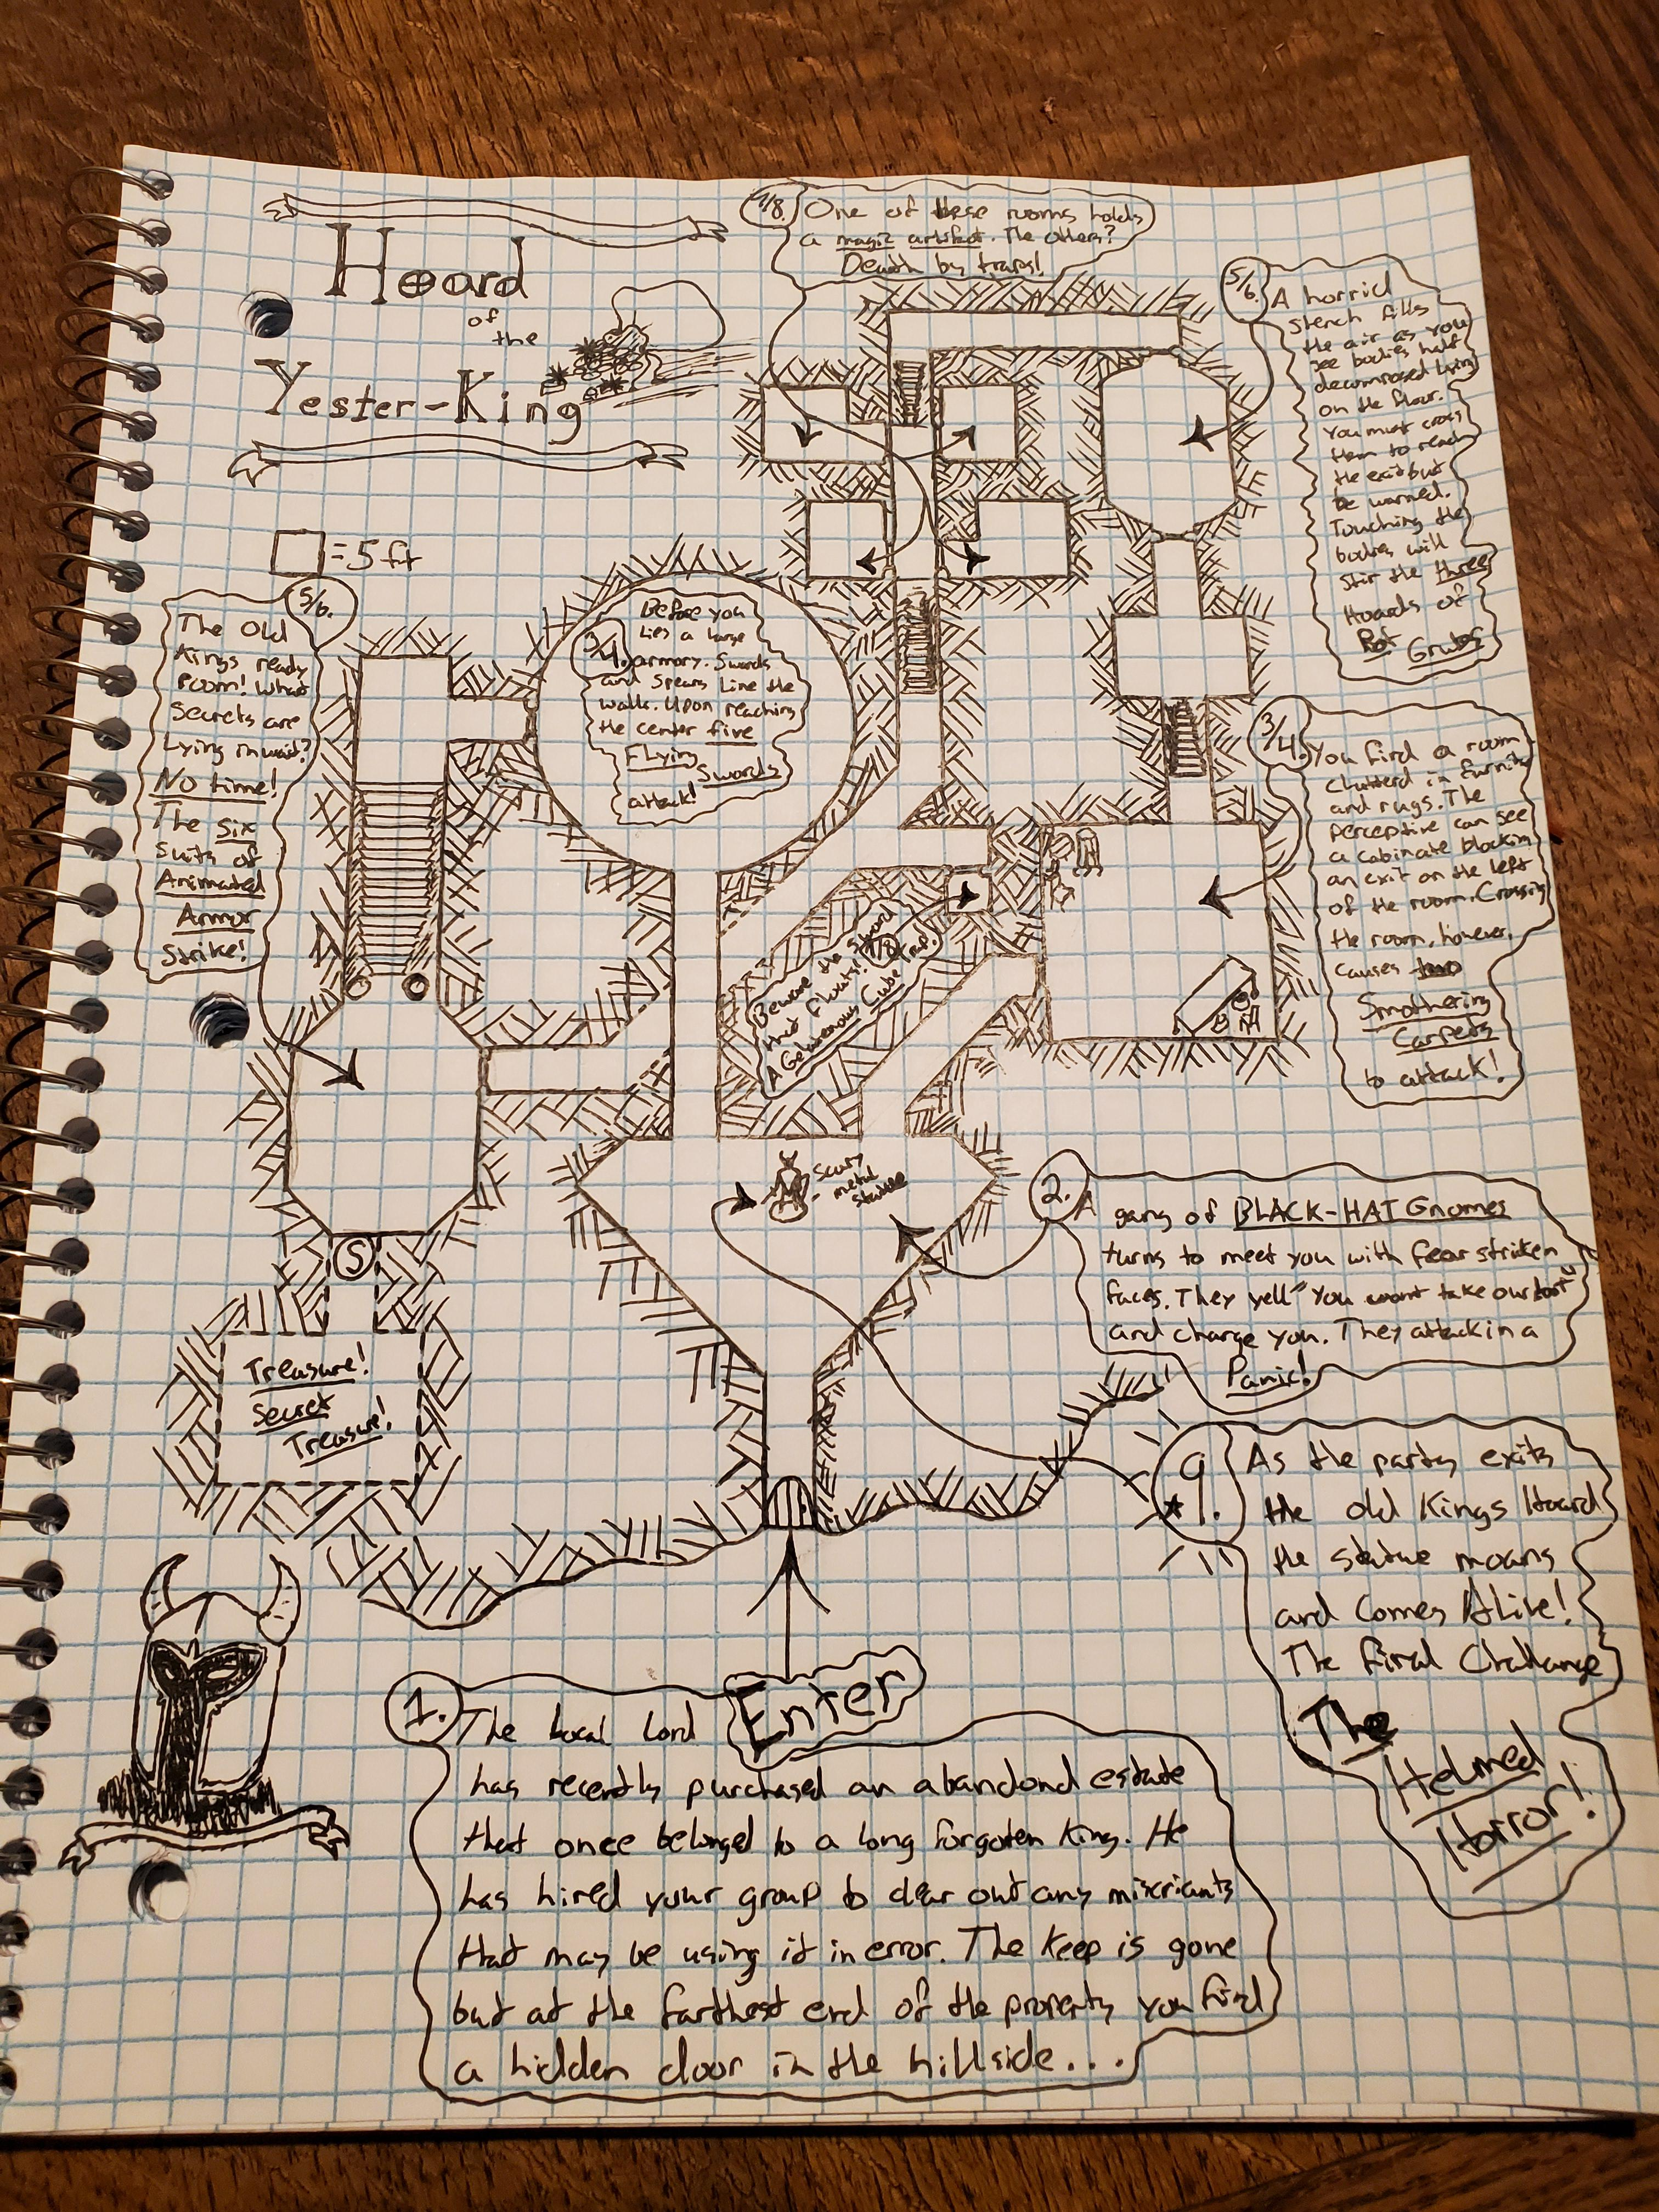 Hoard
of
the
Yester-King
7/8. One of these rooms holds
a magic artifact. The others?
Death by traps!
5/6. A horrid
stench fills
the air as you
see bodies half
decomposed lying
on the floor.
You must cross
them to reach
the exit but
be warned.
Touching the
bodies will
stir the three
Hoards of
Rot Grubs
= 5 ft
5/6.
The Old
Kings ready
room! What
secrets are
Lying in wait?
No time!
The six
suits of
Animated
Armor
Strike!
Before you
lies a large
3/4. armory. Swords
and spears line the
walls. Upon reaching
the center five
Flying
Swords
attack!
3/4. You find a room
clutterd in furniture
and rugs. The
perceptive can see
a cabinate blockin
an exit on the left
of the room. Crossing
the room, however,
causes two
Smothering
Carpets
to attack!
Beware the sword
that floats! 7/8 Trap.
A Gelatenous Cube
Scary
metal
statue
2. A gang of BLACK-HAT Gnomes
turns to meet you with fear striken
faces. They yell "You wont take our loot"
and charge you. They attack in a
Panic!
S
Treasure!
Secret
Treasure!
9. As the party exits
the old Kings Hoard
the statue moans
and Comes Alive!
The final Challange
The
Helmed
Horror!
Enter
1. The local Lord
has recently purchased an abandond estate
that once belonged to a long forgotten King. He
has hired your group to clear out any miscriants
that may be using it in error. The Keep is gone
but at the farthest end of the property you find
a hidden door in the hillside...